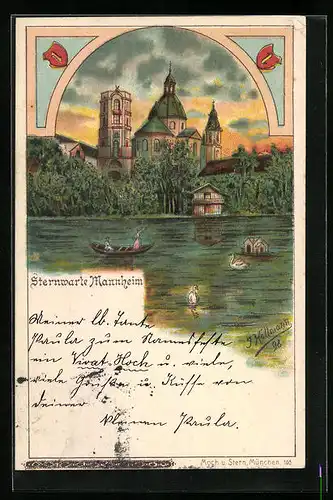 Sternwarte Mannheim
98
Meiner lb. Tante
Paula zum Namensfeste
ein Vivat Hoch u. viele,
viele Grüße u. Küsse von
deiner
kleinen Paula.
Moch u. Stern, München. 168